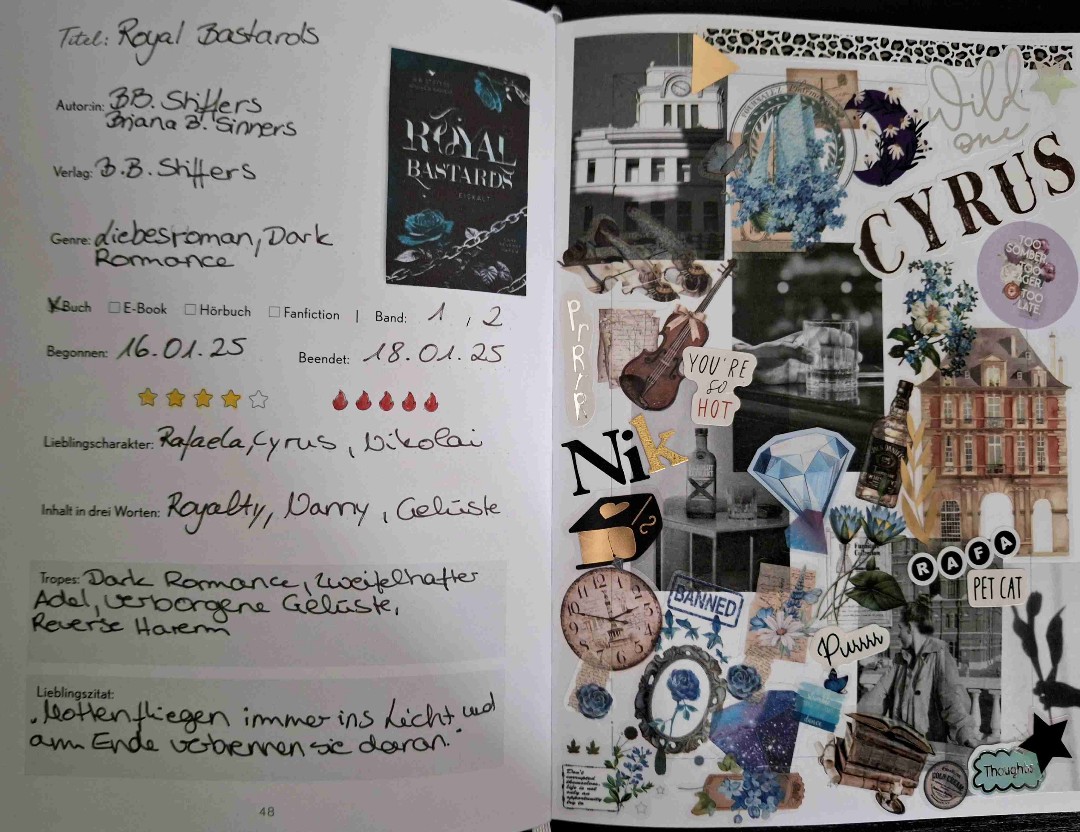 Titel: Royal Bastards
Autor:in: B.B. Shiffers
Briana B. Sinners
Verlag: B.B. Shiffers
Genre: Liebesroman, Dark
Romance
X Buch E-Book Hörbuch Fanfiction | Band: 1, 2
Begonnen: 16.01.25 Beendet: 18.01.25
Lieblingscharakter: Rafaela, Cyrus, Nikolai
Inhalt in drei Worten: Royalty, Nanny, Gelüste
Tropes: Dark Romance, zweifelhafter
Adel, verborgene Gelüste,
Reverse Harem
Lieblingszitat:
„Motten fliegen immer ins Licht und
am Ende verbrennen sie daran."
48
ROYAL
BASTARDS
EISKALT
Wild
one
CYRUS
TOO
SOMBER
TOO
EAGER
TOO
LATE
PrRrr
YOU'RE
so
HOT
Nik
BANNED
RAFA
PET CAT
Purrrr
Thoughts
COLD CREAM